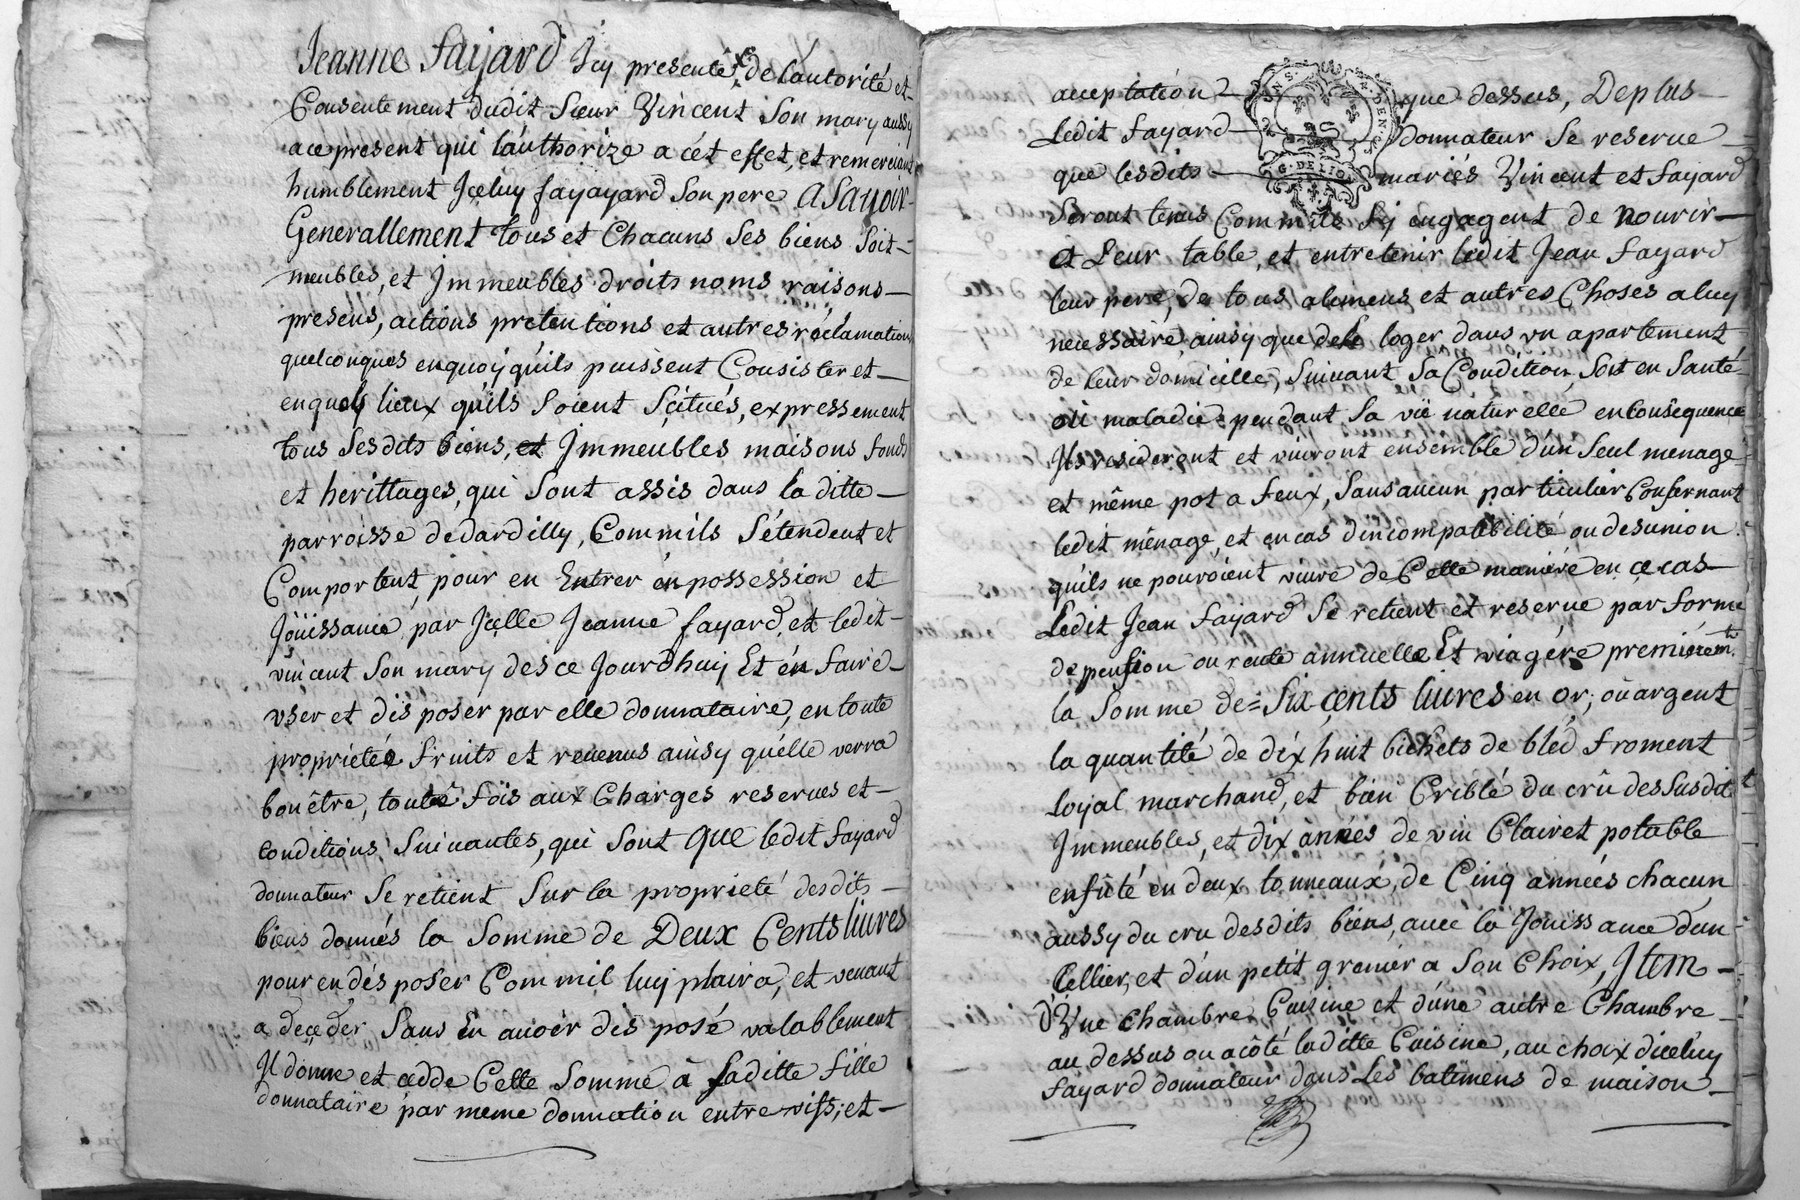 Jeanne fayard Icy presente, de lautorité et
Consentement dudit Sieur Vincent Son mary aussy
ace present qui lauthorize a cét effet, et remerciant
humblement Iceluy fayayard Son pere ASavoir
Generallement tous et Chacuns Ses biens Soit
meubles, et Immeubles droits noms raisons
presens, actions pretentions et autres réclamations
quelconques enquoy quils puissent Consister et
enquels lieux qu'ils Soient Scitués, expressement
tous Sesdits biens, et Immeubles maisons fonds
et herittages, qui Sont assis dans la ditte
parroisse dedardilly, Commils S'étendent et
Comportent, pour en Entrer en possession et
Joüissance par Icelle Jeanne fayard, et ledit
vincent Son mary des ce Jourdhuy Et en faire
vser et dis poser par elle donnataire, en toute
proprieteé fruits et revenus ainsy qu'elle verra
bonêtre, toute fois aux Charges reserves et
conditions Suivantes, qui Sont que ledit fayard
donnateur Se retient Sur la proprieté desdits
biens donnés la Somme de Deux Cents livres
pour en dés poser Comm il luy plaira, et venant
a deçeder Sans En avoir dis posé valablement
Il donne et cedde Cette Somme à Saditte fille
donnataire par meme donnation entre vifs, et
acceptation que dessus, Deplus
Ledit fayard donnateur Se reserve
que lesdits mariés Vincent et fayard
G. DE LION
Seront tenus Comm'ils Sy engagent de nourir
et Leur table, et entretenir ledit Jean fayard
leur pere, de tous alimens et autres Choses a luy
necessaire, ainsy que dele loger dans un apartement
de leur domicille, Suivant Sa Condition, Soit en Santé
ou maladie pendant Sa vie naturelle en Conséquence
Ils resideront et vivront ensemble d'un Seul menage
et même pot a feux, Sans aucun particulier Consernant
ledit ménage, et en cas d'incompatibilité ou desunion
quils ne pouroient vivre de Cette maniére en ce cas
Ledit Jean fayard Se retient et reserve par forme
de pension ou rente annuelle Et viagére premiérem.t
la Somme de Six cents livres en or, où argent
la quantité de dix huit bichets de bléd froment
loyal marchand, et bien Criblé du crû des Susdit
Immeubles, et dix années de vin Clairet potable
enfûté en deux tonneaux, de Cinq années chacun
aussy du cru desdits biens, avec la Jouissance d'un
Cellier, et d'un petit grenier a Son Choix, Item
d'Vne Chambre Cuisine et d'une autre Chambre
au dessus ou acôté laditte Cuisine, au choix diceluy
fayard donnateur dans Les batimens de maison